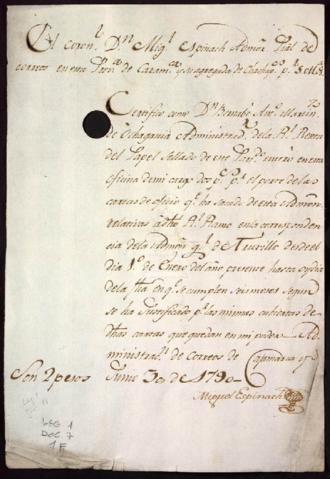 El Coron.l D.n Mig.l Espinach Admor. Pral. de
correos en esta Prov.a de Caxam.ca y su agregada de Chachap.s p.r S.M.
Certifico como D.n Bernabe Ant.o Martin.
de Ochagavia Administrad.r de la R.l Renta
del Papel Sellado de este Part.do entero en esta
oficina de mi cargo dos p.s p.r el porte de las
cartas de oficio q.e ha sacado de esta Admon.
relativas a dho R.l Ramo en la correspondencia
de la Admon g.l de Truxillo desde el
dia 1.o de Enero del año presente hasta oy dia
de la fha en q.e se cumplen seis meses segun
se ha Justificado p.r las mismas cubiertas de
dhas cartas que quedan en mi poder. Administraz.n
de Correos de Caxamarca y
Junio 30 de 1790
Son 2 pesos
Miguel Espinach
LEG 1
DOC 7
1 F